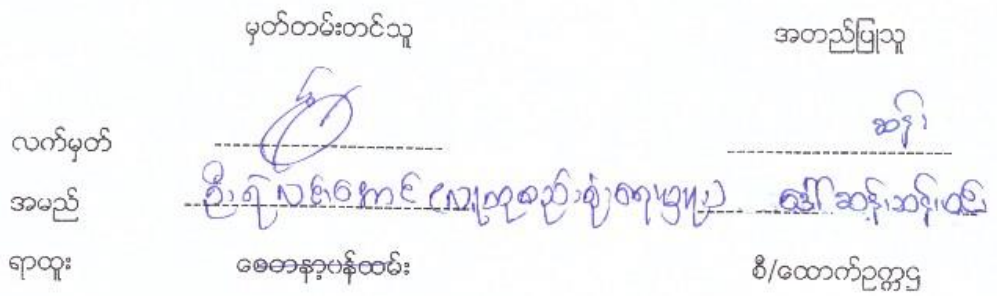 မှတ်တမ်းတင်သူ အတည်ပြုသူ
လက်မှတ် ဆန်း
အမည် ဦးရဲလင်းအောင် (လူထုစည်းရုံးရေးမှူး) ဒေါ်ဆန်းဆန်းဝင်း
ရာထူး စေတနာ့ဝန်ထမ်း စီ/ထောက်ဥက္ကဋ္ဌ